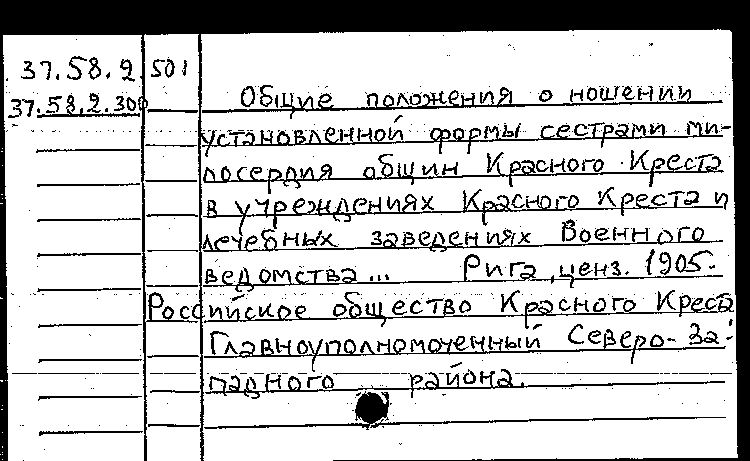 37.58.2 501
37.58.2.300 Общие положения о ношении
установленной формы сестрами ми-
лосердия общин Красного Креста
в учреждениях Красного Креста и
лечебных заведениях Военного
ведомства... Рига, ценз. 1905.
Российское общество Красного Креста
Главноуполномоченный Северо-За-
падного района.